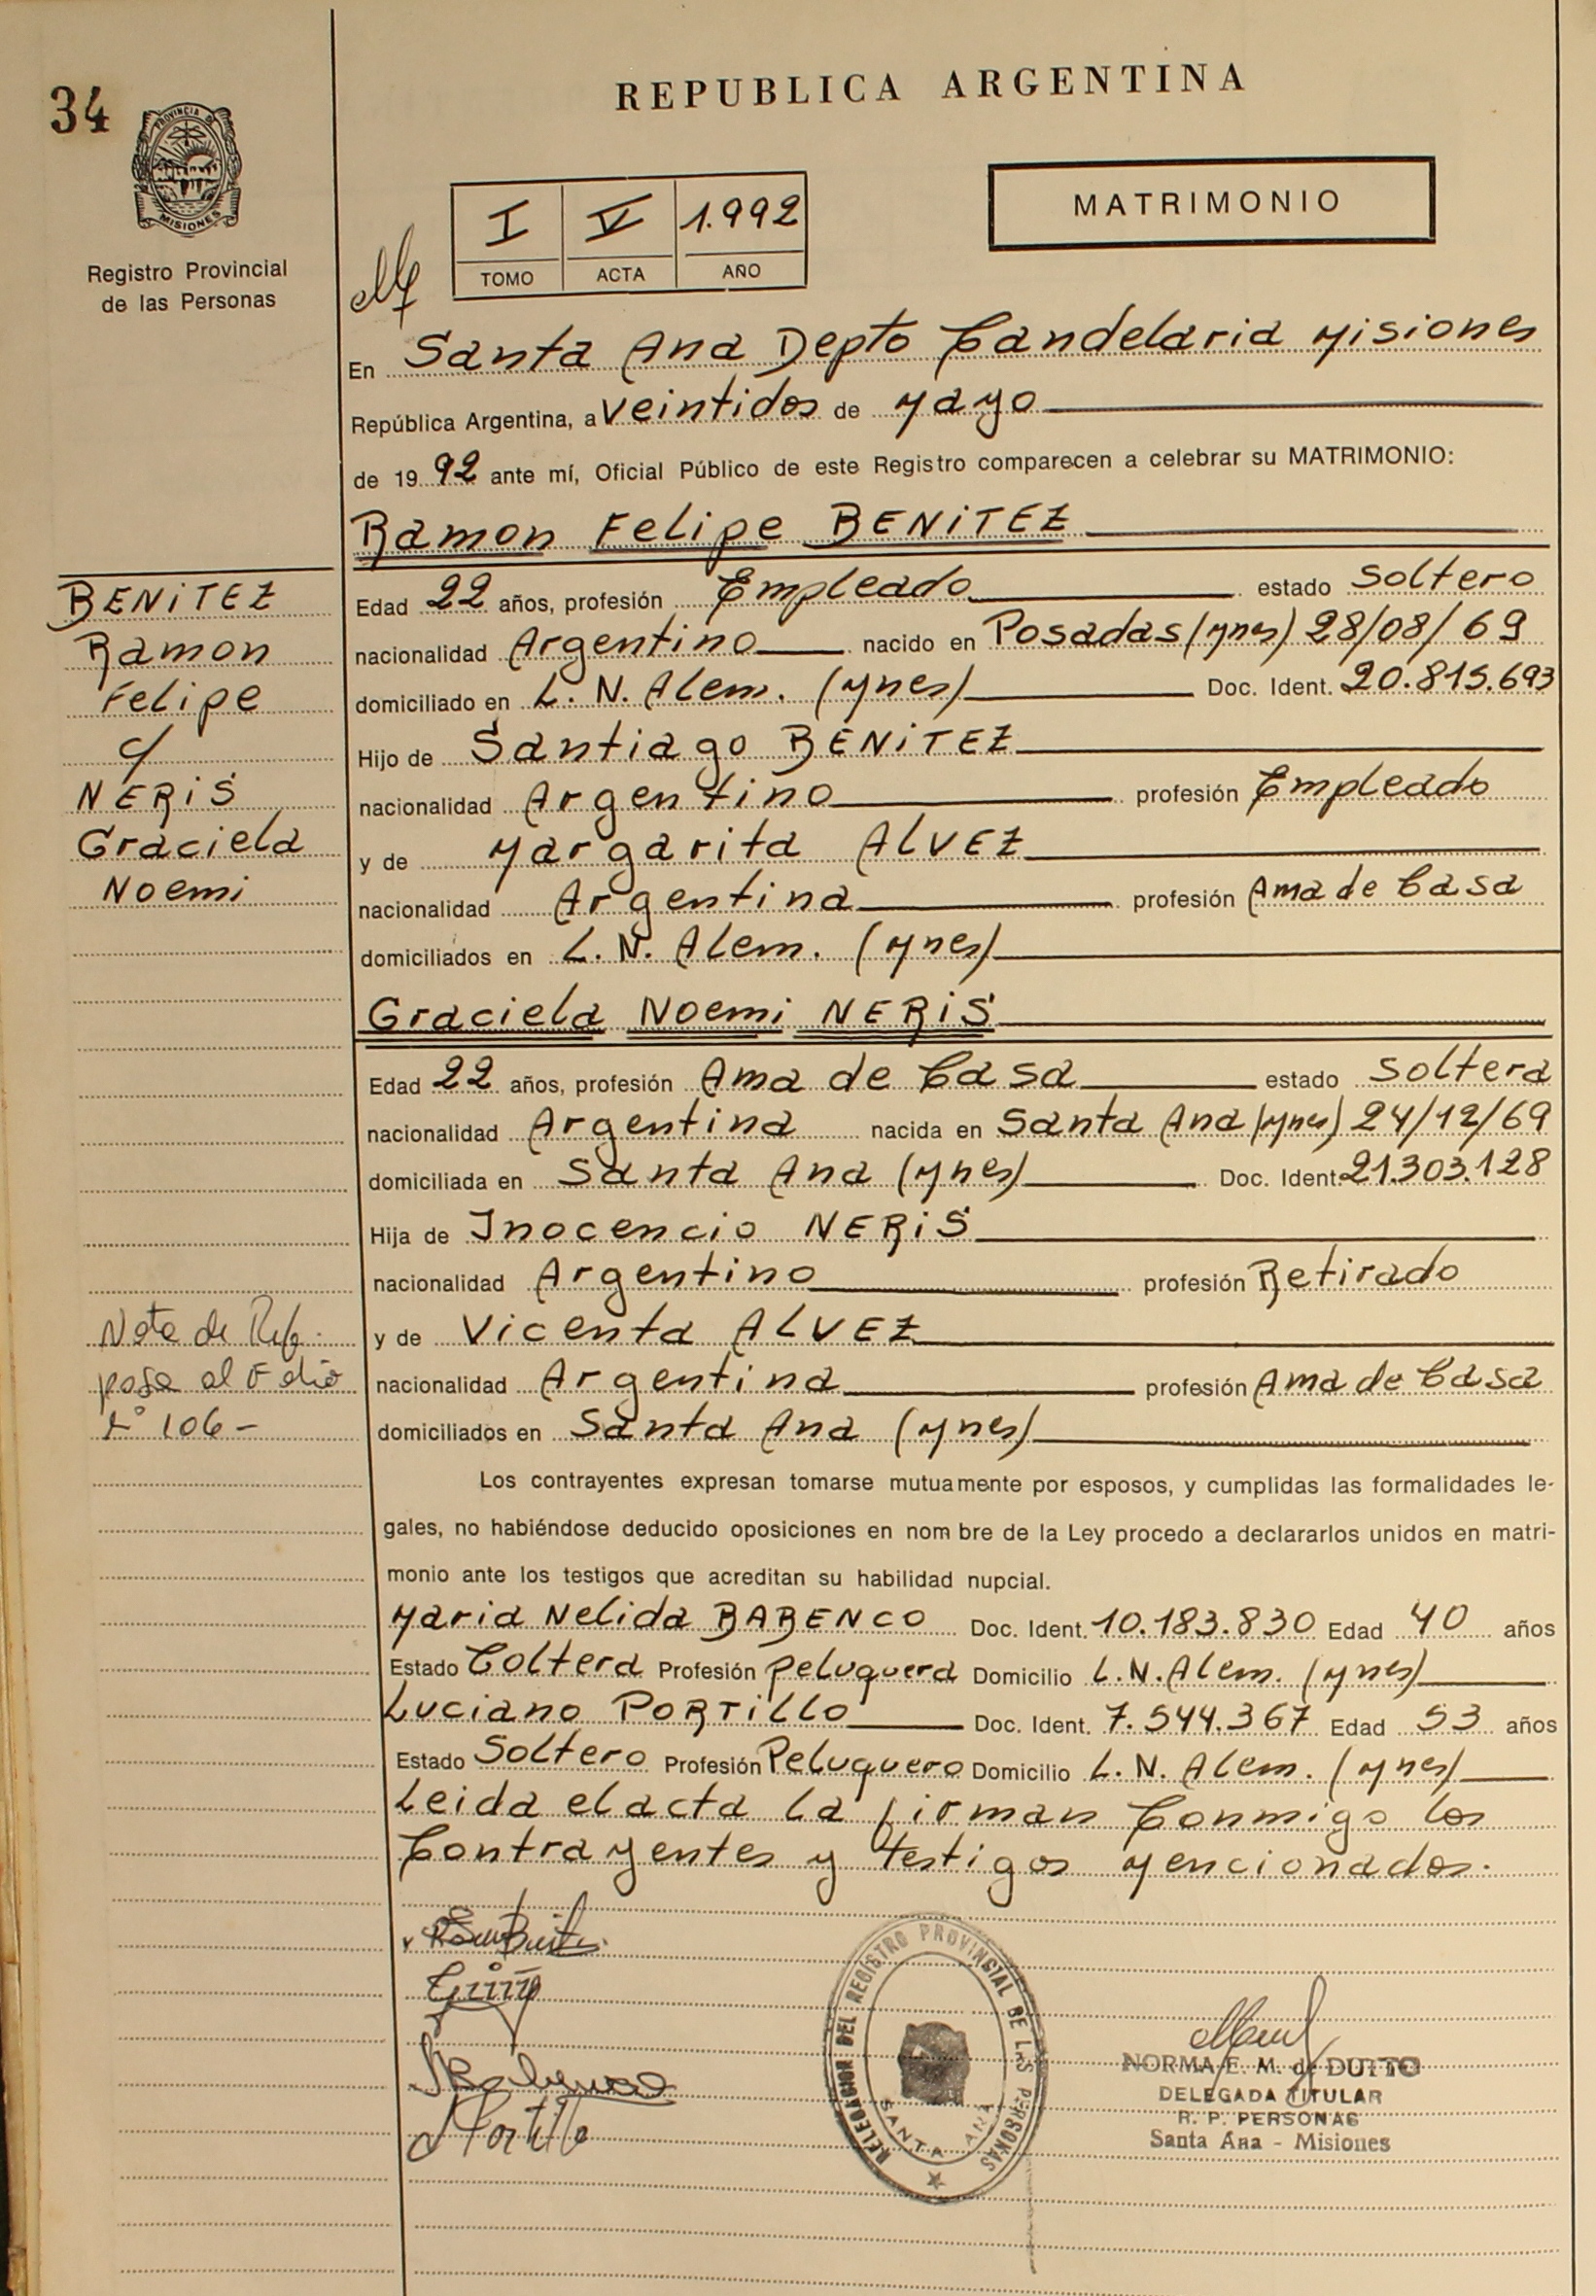 34
REPUBLICA ARGENTINA
PROVINCIA DE
MISIONES
Registro Provincial
de las Personas
I V 1.992
TOMO ACTA AÑO
MATRIMONIO
En Santa Ana Depto Candelaria Misiones
República Argentina, a veintidos de Mayo
de 19 92 ante mí, Oficial Público de este Registro comparecen a celebrar su MATRIMONIO:
Ramon Felipe BENITEZ
BENITEZ
Ramon
Felipe
c/
NERIS
Graciela
Noemi
Edad 22 años, profesión Empleado estado Soltero
nacionalidad Argentino nacido en Posadas (Mnes) 28/08/69
domiciliado en L. N. Alem. (Mnes) Doc. Ident. 20.815.693
Hijo de Santiago BENITEZ
nacionalidad Argentino profesión Empleado
y de Margarita ALVEZ
nacionalidad Argentina profesión Ama de Casa
domiciliados en L. N. Alem. (Mnes)
Graciela Noemi NERIS
Edad 22 años, profesión Ama de Casa estado Soltera
nacionalidad Argentina nacida en Santa Ana (Mnes) 24/12/69
domiciliada en Santa Ana (Mnes) Doc. Ident 21.303.128
Hija de Inocencio NERIS
nacionalidad Argentino profesión Retirado
y de Vicenta ALVEZ
nacionalidad Argentina profesión Ama de Casa
domiciliados en Santa Ana (Mnes)
Nota de Ref.
pasa al Folio
Nº 106 -
Los contrayentes expresan tomarse mutuamente por esposos, y cumplidas las formalidades le-
gales, no habiéndose deducido oposiciones en nom bre de la Ley procedo a declararlos unidos en matri-
monio ante los testigos que acreditan su habilidad nupcial.
Maria Nelida BABENCO Doc. Ident. 10.183.830 Edad 40 años
Estado Coltera Profesión Peluquera Domicilio L. N. Alem. (Mnes)
Luciano PORTILLO Doc. Ident. 7.544.367 Edad 53 años
Estado Soltero Profesión Peluquero Domicilio L. N. Alem. (Mnes)
Leida el acta la firman Conmigo los
Contrayentes y testigos Mencionados.
Portillo
DELEGACION DEL REGISTRO PROVINCIAL DE LAS PERSONAS
SANTA ANA
NORMA E. M. de DUTTO
DELEGADA TITULAR
R. P. PERSONAS
Santa Ana - Misiones